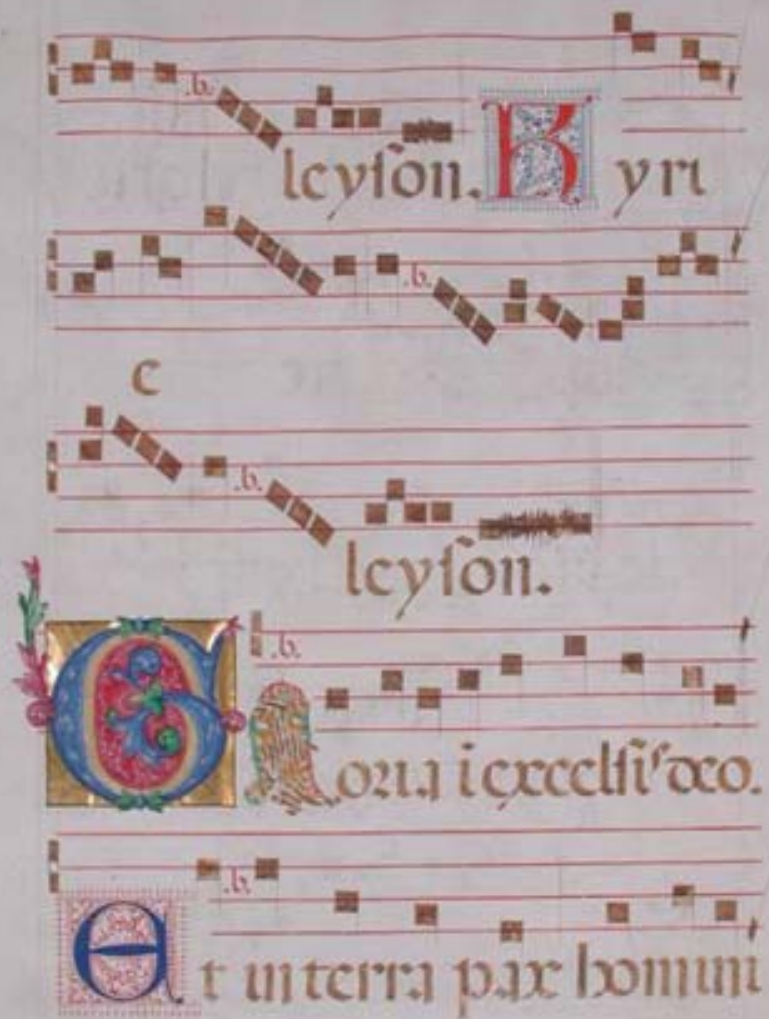 .b.
leyſon. Kyri
.b.
e
.b.
leyſon.
.b.
Gloria i excelſis deo.
.b.
Et in terra pax homini